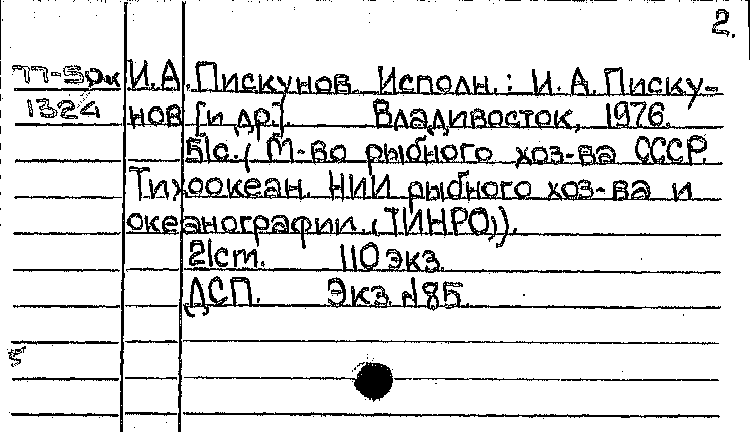 2.
77-5дк И.А. Пискунов Исполн.: И.А. Писку-
1324 нов [и др.]. Владивосток, 1976.
51с. (М-во рыбного хоз-ва СССР.
Тихоокеан. НИИ рыбного хоз-ва и
океанографии. (ТИНРО)).
21см. 110 экз.
ДСП. Экз. №85.
5